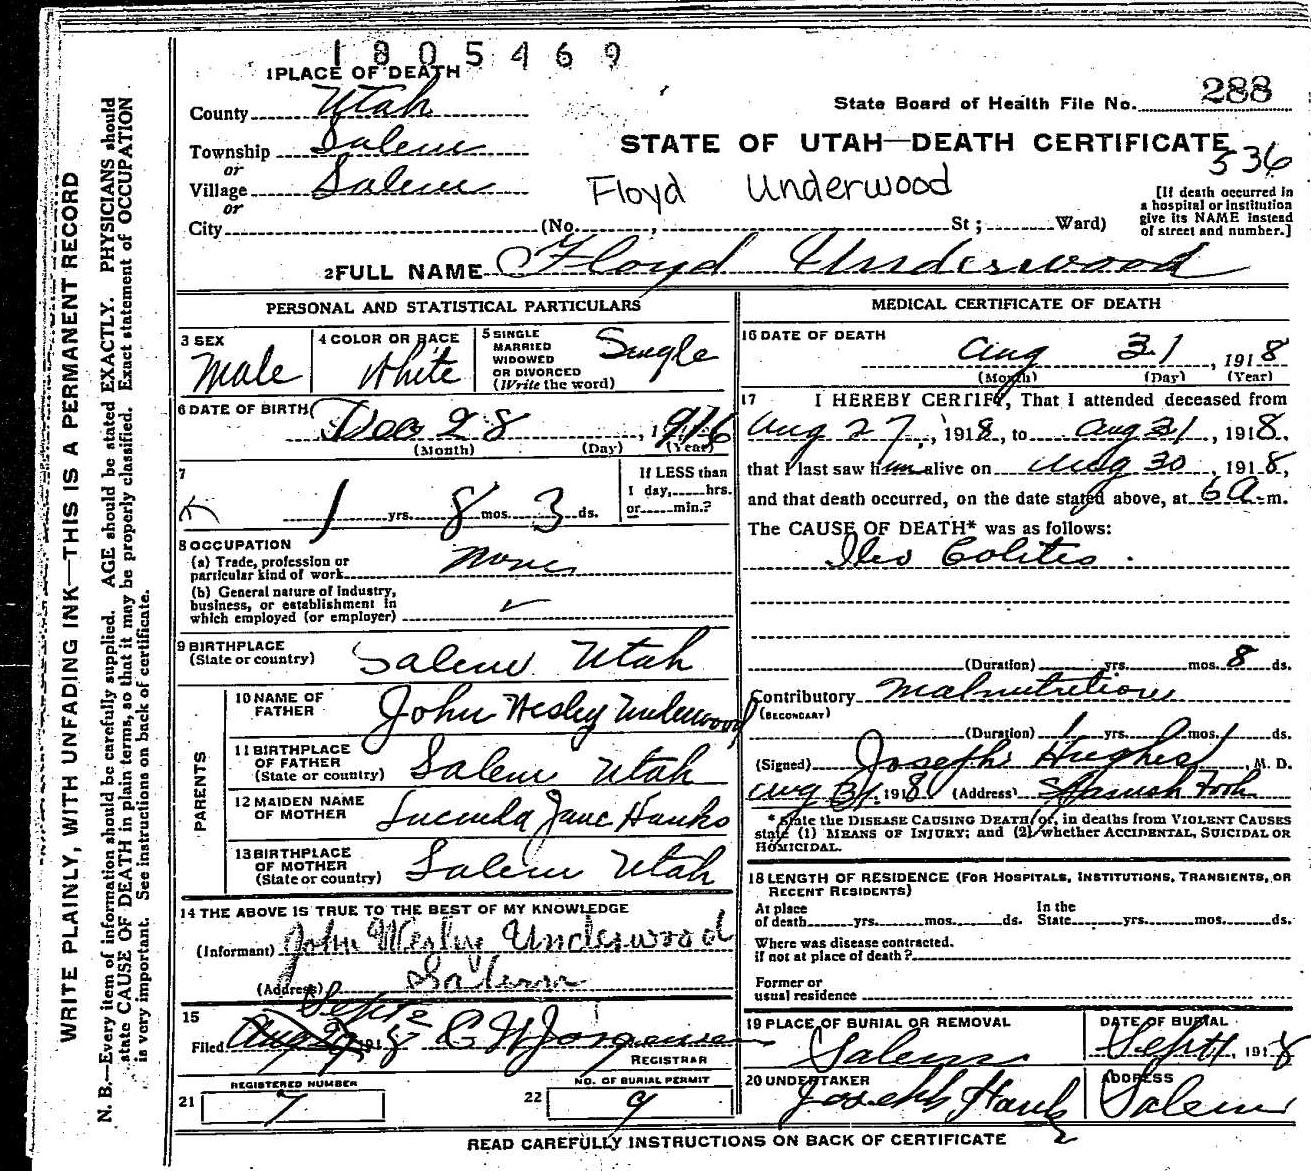 1805469
1 PLACE OF DEATH
County Utah
State Board of Health File No. 288
Township Salem
or
STATE OF UTAH—DEATH CERTIFICATE
536
Village Salem
or
Floyd Underwood
[If death occurred in
a hospital or institution
give its NAME instead
of street and number.]
City (No. , St ; Ward)
2 FULL NAME Floyd Underwood
PERSONAL AND STATISTICAL PARTICULARS
3 SEX
Male
4 COLOR OR RACE
White
5 SINGLE
MARRIED
WIDOWED
OR DIVORCED
(Write the word)
Single
6 DATE OF BIRTH
Dec 28, 1916
(Month) (Day) (Year)
7
1 yrs. 8 mos. 3 ds.
If LESS than
1 day, hrs.
or min.?
8 OCCUPATION
(a) Trade, profession or
particular kind of work None
(b) General nature of Industry,
business, or establishment in
which employed (or employer)
9 BIRTHPLACE
(State or country) Salem Utah
PARENTS
10 NAME OF
FATHER John Wesley Underwood
11 BIRTHPLACE
OF FATHER
(State or country) Salem Utah
12 MAIDEN NAME
OF MOTHER Lucinda Jane Hanks
13 BIRTHPLACE
OF MOTHER
(State or country) Salem Utah
14 THE ABOVE IS TRUE TO THE BEST OF MY KNOWLEDGE
(Informant) John Wesley Underwood
(Address) Salem
15
Sept 2
Filed Aug 191 8 C W Jorgensen
REGISTRAR
REGISTERED NUMBER
21 7
NO. OF BURIAL PERMIT
22 9
MEDICAL CERTIFICATE OF DEATH
16 DATE OF DEATH
Aug 31, 1918
(Month) (Day) (Year)
17 I HEREBY CERTIFY, That I attended deceased from
Aug 27, 1918, to Aug 31, 1918.
that I last saw him alive on Aug 30, 1918,
and that death occurred, on the date stated above, at 6 a m.
The CAUSE OF DEATH* was as follows:
Ileo Colitis.
(Duration) yrs. mos. 8 ds.
Contributory Malnutrition
(SECONDARY)
(Duration) 1 yrs. mos. ds.
(Signed) Joseph Hughes, M. D.
Aug 31, 1918. (Address) Spanish Fork
* State the DISEASE CAUSING DEATH, or, in deaths from VIOLENT CAUSES
state (1) MEANS OF INJURY; and (2) whether ACCIDENTAL, SUICIDAL OR
HOMICIDAL.
18 LENGTH OF RESIDENCE (FOR HOSPITALS, INSTITUTIONS, TRANSIENTS, OR
RECENT RESIDENTS)
At place
of death yrs. mos. ds.
In the
State yrs. mos. ds.
Where was disease contracted.
if not at place of death?
Former or
usual residence
19 PLACE OF BURIAL OR REMOVAL
Salem
DATE OF BURIAL
Sept 1, 1918
20 UNDERTAKER
Joseph Hanks
ADDRESS
Salem
READ CAREFULLY INSTRUCTIONS ON BACK OF CERTIFICATE
WRITE PLAINLY, WITH UNFADING INK—THIS IS A PERMANENT RECORD
N. B.—Every item of information should be carefully supplied. AGE should be stated EXACTLY. PHYSICIANS should
state CAUSE OF DEATH in plain terms, so that it may be properly classified. Exact statement of OCCUPATION
is very important. See instructions on back of certificate.